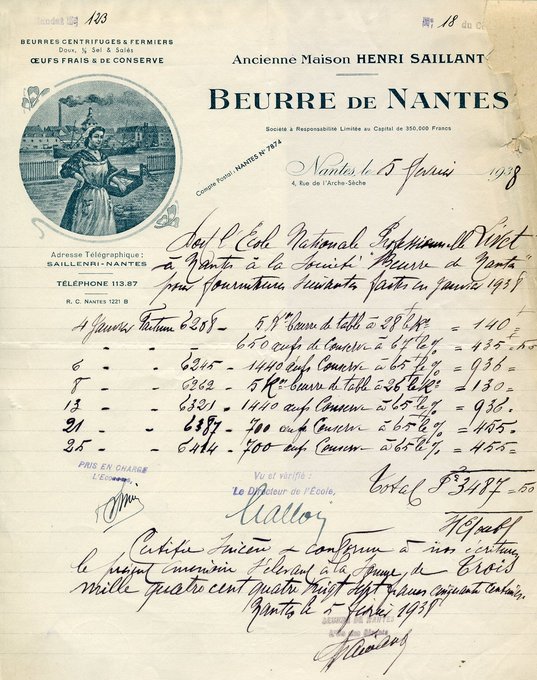 Mandat N° 123
N° 18 du C
BEURRES CENTRIFUGES & FERMIERS
Doux, ½ Sel & Salés
ŒUFS FRAIS & DE CONSERVE
Ancienne Maison HENRI SAILLANT
BEURRE DE NANTES
Société à Responsabilité Limitée au Capital de 350,000 Francs
Compte Postal: NANTES N° 7874
Nantes, le 5 février 1938
4, Rue de l'Arche-Sèche
Adresse Télégraphique:
SAILLENRI-NANTES
TÉLÉPHONE 113.87
R. C. NANTES 1221 B
Doit l'Ecole Nationale Professionnelle Livet
à Nantes à la Société "Beurre de Nantes"
pour fournitures suivantes faites en Janvier 1938
4 Janvier Facture 6208 - 5 K°s beurre de table à 28 le K° = 140 =
- - - 650 œufs de Conserve à 67 le % = 435 = 50
6 - 6245 - 1440 œufs Conserve à 65 le % = 936 =
8 - 6262 - 5 K°s beurre de table à 26 le K° = 130 =
13 - 6321 - 1440 œufs Conserve à 65 le % = 936 =
21 - 6387 - 700 œufs Conserve à 65 le % = 455 =
25 - 6414 - 700 œufs Conserve à 65 le % = 455 =
Total Frs 3487 = 50
PRIS EN CHARGE
L'Econome,
Vu et vérifié:
Le Directeur de l'Ecole,
Certifié sincère & conforme à nos écritures
le présent mémoire s'élevant à la somme de Trois
mille quatre cent quatre vingt sept francs cinquante centimes
Nantes le 5 février 1938
BEURRE DE NANTES